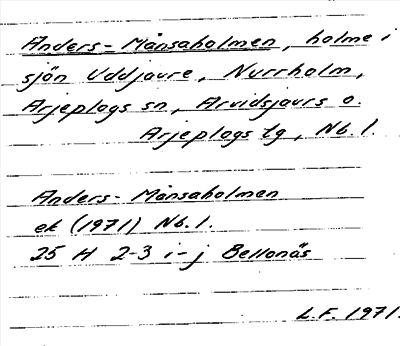 Anders-Månsaholmen, holme i
sjön Uddjaure, Nurrholm,
Arjeplogs sn, Arvidsjaurs o.
Arjeplogs tg, Nb. l.
Anders-Månsaholmen
ek (1971) Nb. l.
25 H 2-3 i-j Bellonäs
L.F. 1971.